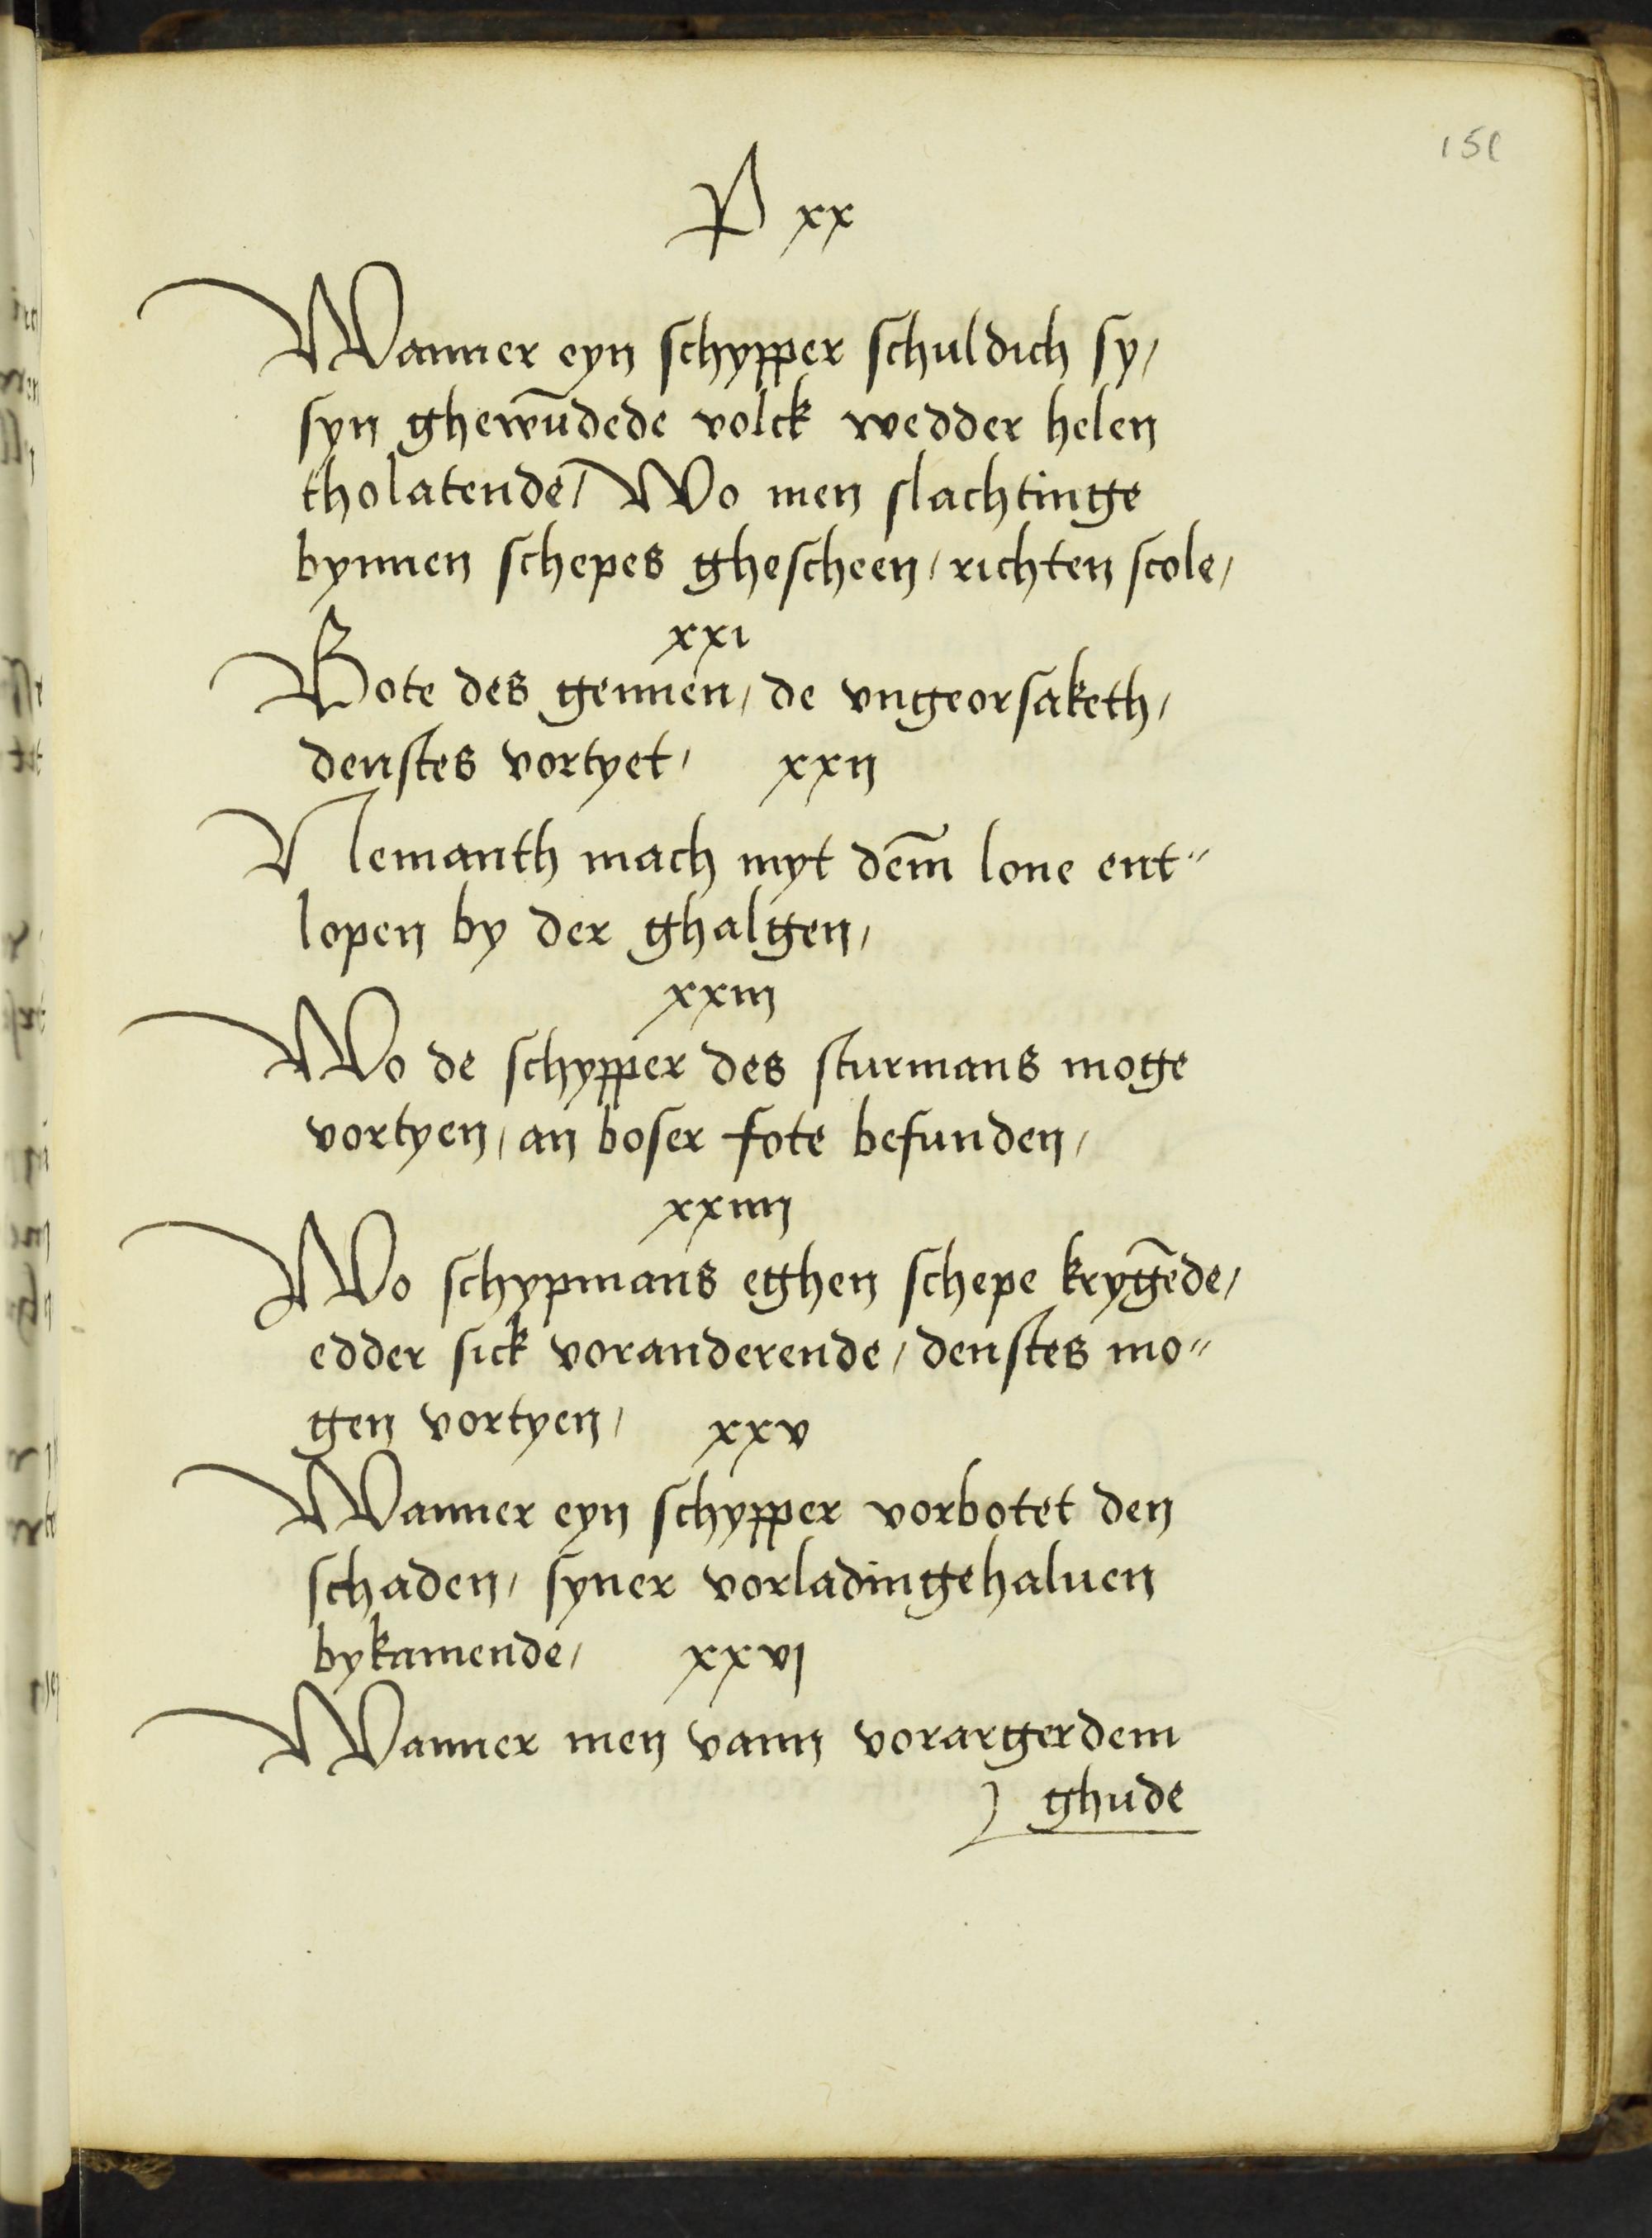 151
P xx
Wanner eyn schypper schuldich sy/
syn ghewu̅dede volck wedder helen
tholatende/ Wo men slachtinge
bynnen schepes ghescheen/ richten scole/
xxi
Bote des gennen/ de vngeorsaketh/
denstes vortyet/ xxij
Nemanth mach myt dem̅ lone ent"
lopen by der ghalgen/
xxiij
Wo de schypper des sturmans moge
vortyen/ an boser fote befunden/
xxiiij
Wo schypmans eghen schepe kryge̅de/
edder sick voranderende/ denstes mo"
gen vortyen/ xxv
Wanner eyn schypper vorbotet den
schaden/ syner vorladingehaluen
bykamende/ xxvj
Wanner men vann vorargerdem
ghude